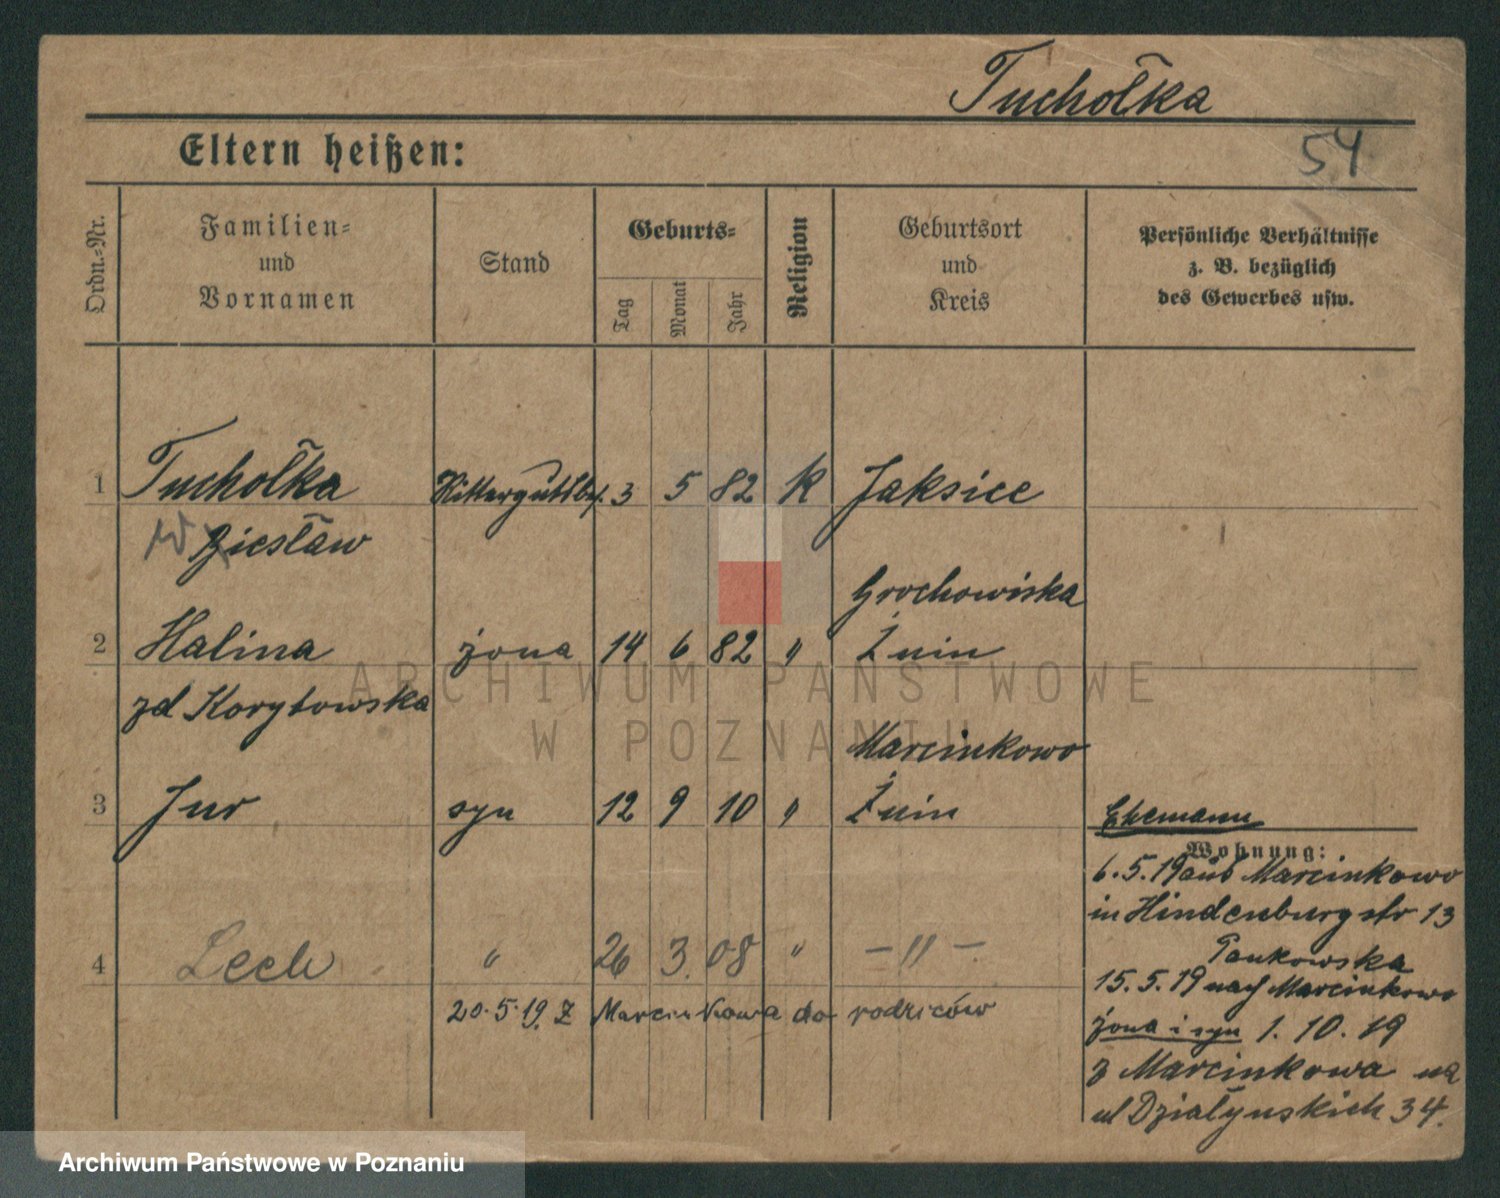 Tucholka
54
Eltern heißen:
Ordn.-Nr.
Familien-
und
Vornamen
Stand
Geburts-
Tag
Monat
Jahr
Religion
Geburtsort
und
Kreis
Persönliche Verhältnisse
z. B. bezüglich
des Gewerbes usw.
1 Tuchołka Rittergutsbes. 3 5 82 K Jaksice
Ziesław
Grochowiska
2 Halina żona 14 6 82 " Żnin
zd Korytowska
Marcinkowo
3 Jur syn 12 9 10 " Żnin
Ehemann
Wohnung:
6.5.19 aus Marcinkowo
in Hindenburgstr 13
4 Lech " 26 3. 08 " – " –
Pankowska
15.5.19 nach Marcinkowo
20.5.19. Z Marcinkowa do rodziców
żona i syn 1.10.19
z Marcinkowa na
ul Działyńskich 34.
ARCHIWUM PAŃSTWOWE
W POZNANIU
Archiwum Państwowe w Poznaniu